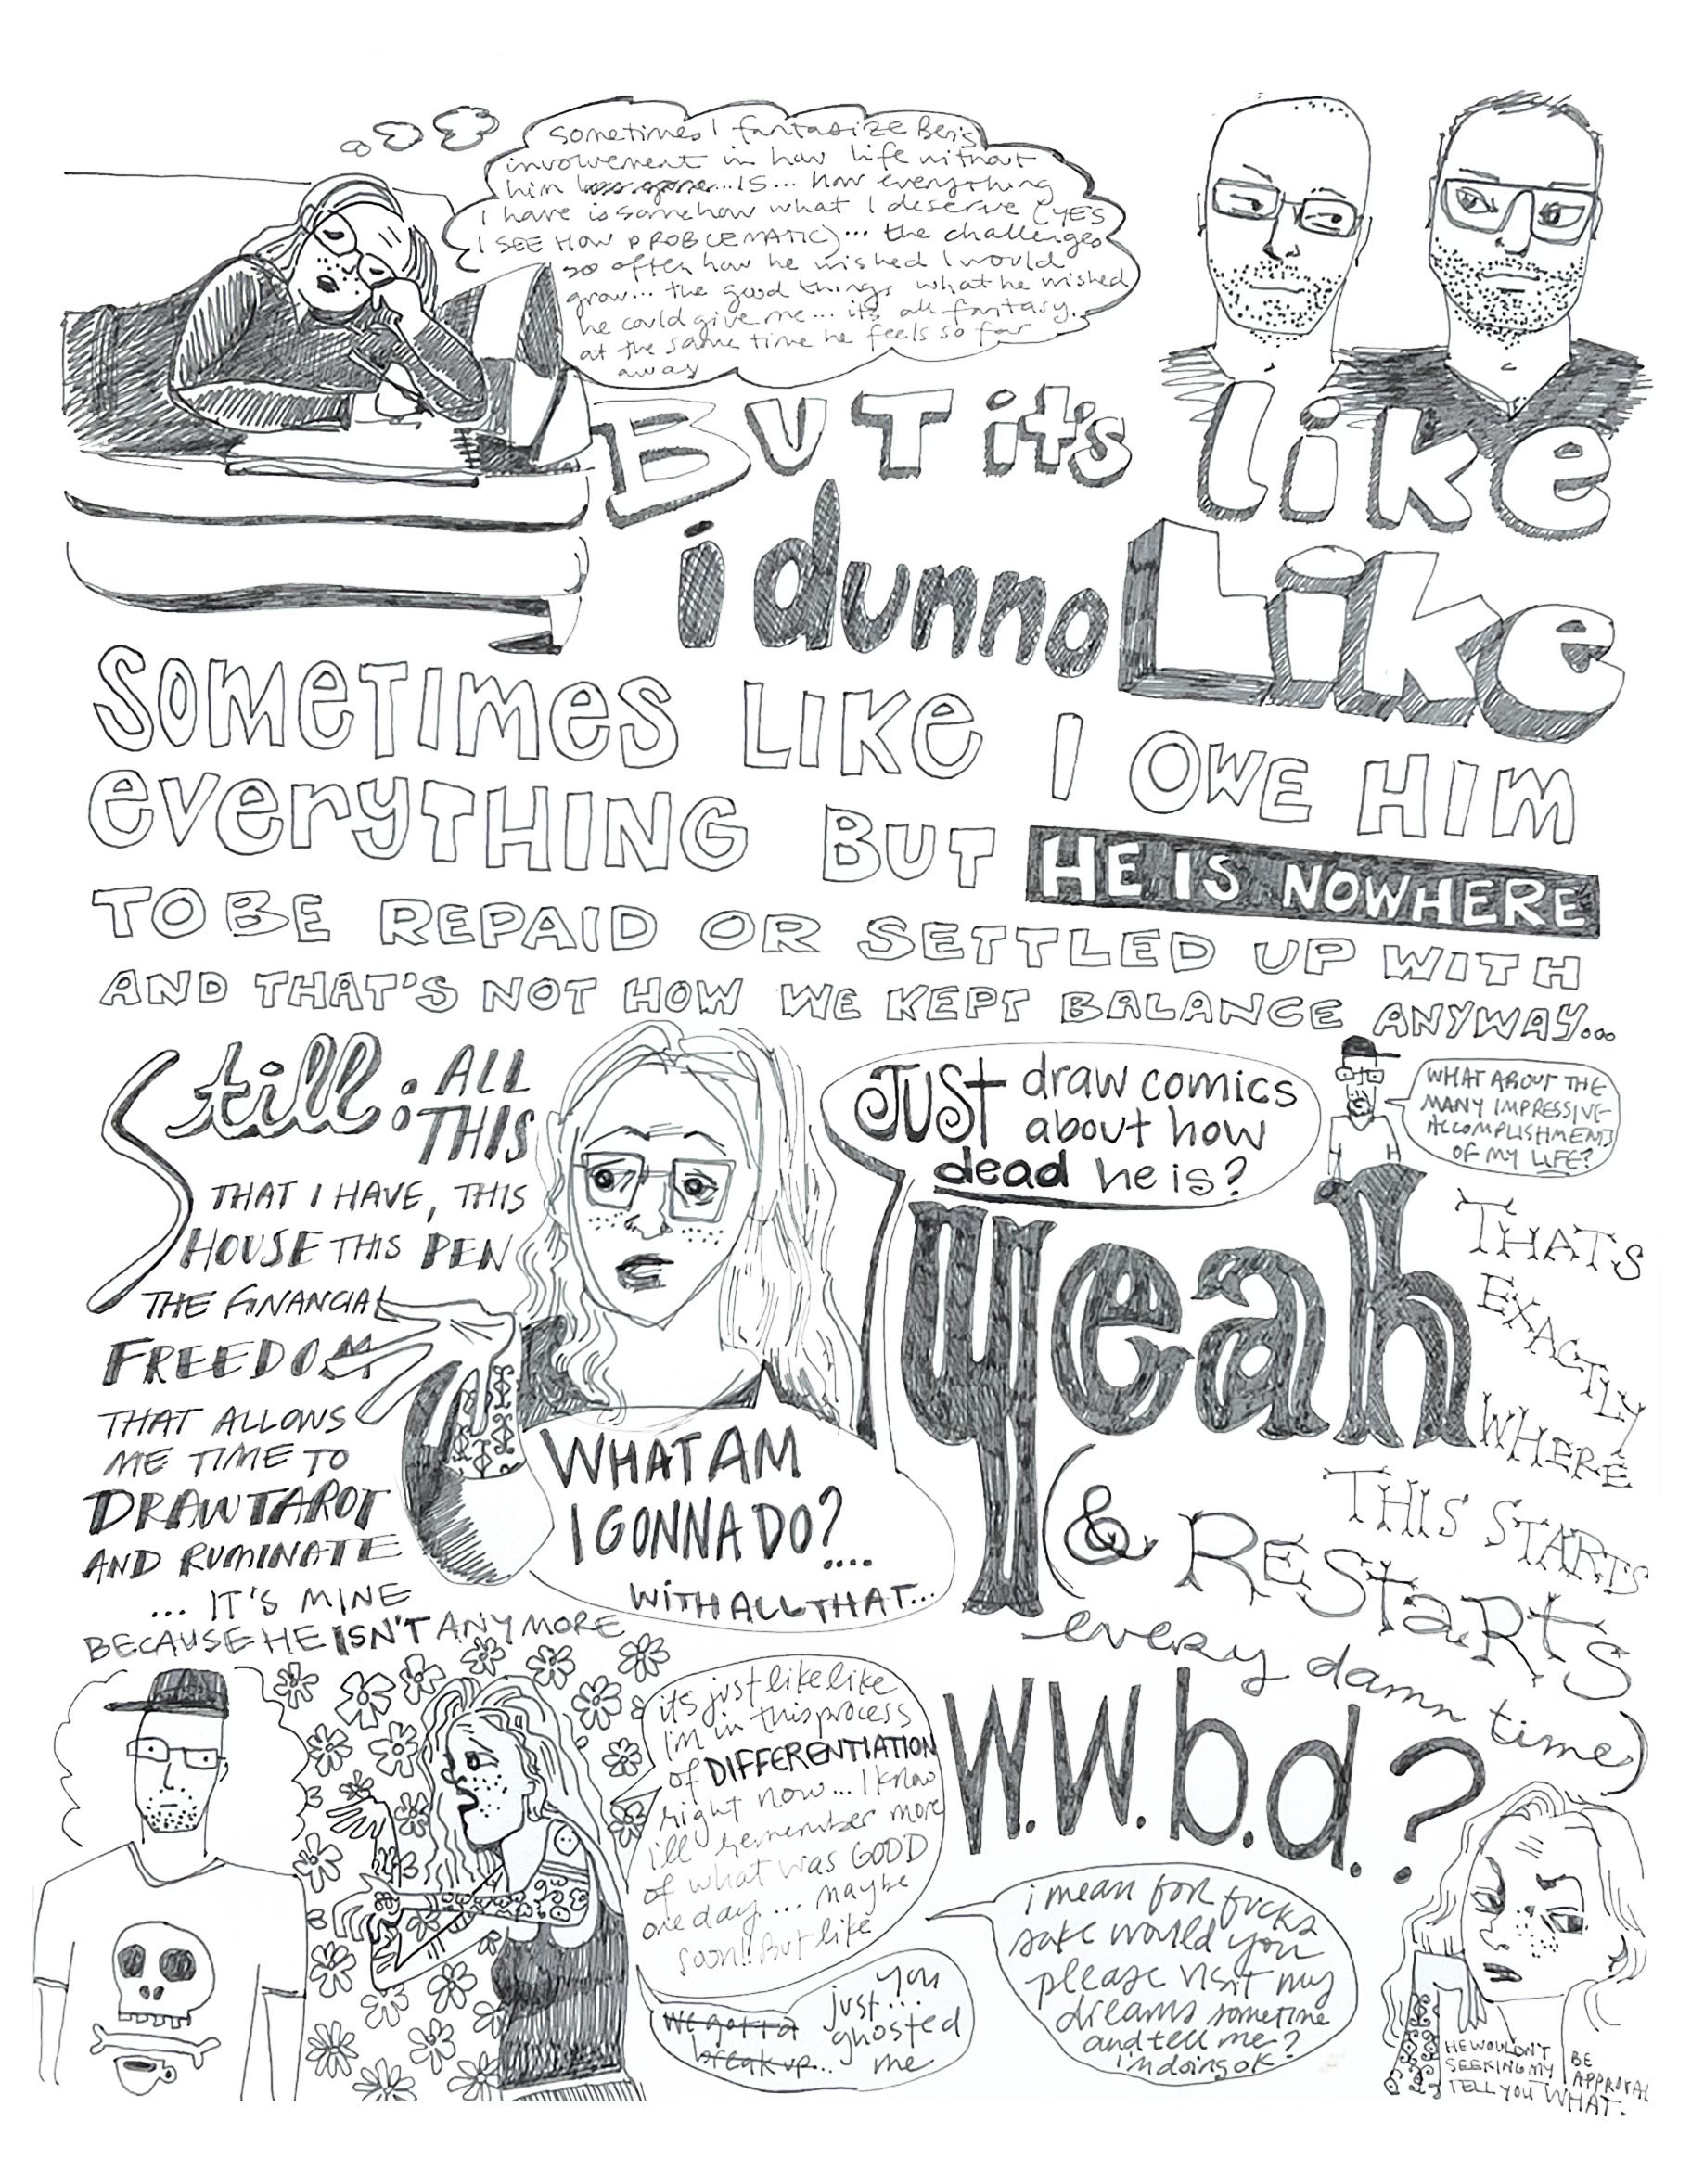 Sometimes I fantasize Ben's
involvement in how life without
him has gone...IS... how everything
I have is somehow what I deserve (YES
I SEE HOW PROBLEMATIC)... the challenges
so often how he wished I would
grow... the good things what he wished
he could give me... it's all fantasy.
at the same time he feels so far
away
BUT it's like
i dunno Like
SOMETIMES LIKE I OWE HIM
everyTHING BUT HE IS NOWHERE
TO BE REPAID OR SETTLED UP WITH
AND THAT'S NOT HOW WE KEPT BALANCE ANYWAY...
Still: ALL
THIS
THAT I HAVE, THIS
HOUSE THIS PEN
THE FINANCIAL
FREEDOM
THAT ALLOWS
ME TIME TO
DRAW TAROT
AND RUMINATE
... IT'S MINE
BECAUSE HE ISN'T ANYMORE
WHAT AM
I GONNA DO?....
WITH ALL THAT...
JUST draw comics
about how
dead he is?
WHAT ABOUT THE
MANY IMPRESSIVE
ACCOMPLISHMENTS
OF MY LIFE?
yeah
THAT'S
EXACTLY
WHERE
THIS STARTS
(& REStaRtS
every damn time)
it's just like like
I'm in this process
of DIFFERENTIATION
right now... I know
i'll remember more
of what was GOOD
one day... maybe
soon!! But like
we gotta
break up...
you
just...
ghosted
me
W.W.b.d.?
i mean for fucks
sake would you
please visit my
dreams sometime
and tell me?
i'm doing ok?
HE WOULDN'T BE
SEEKING MY APPROVAL
TELL YOU WHAT.